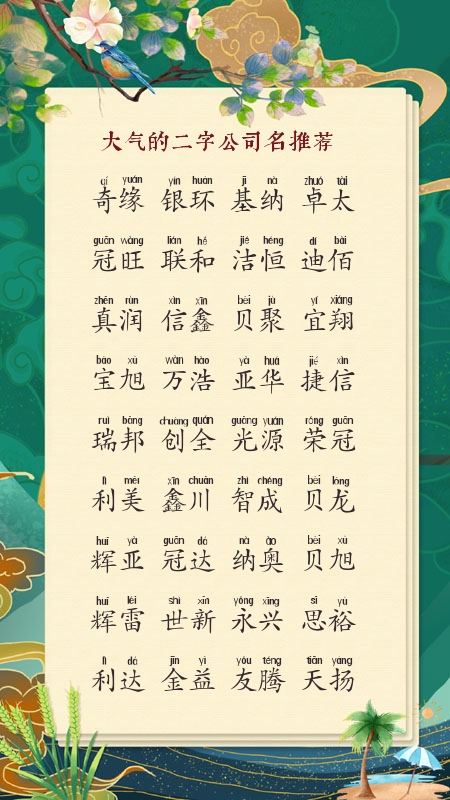 大气的二字公司名推荐
qí yuán yín huán jī nà zhuó tài
奇缘 银环 基纳 卓太
guān wàng lián hé jié héng dí bǎi
冠旺 联和 洁恒 迪佰
zhēn rùn xìn xīn bèi jù yí xiáng
真润 信鑫 贝聚 宜翔
bǎo xù wàn hào yà huá jié xìn
宝旭 万浩 亚华 捷信
ruì bāng chuàng quán guāng yuán róng guān
瑞邦 创全 光源 荣冠
lì měi xīn chuān zhì chéng bèi lóng
利美 鑫川 智成 贝龙
huī yà guān dá nà ào bèi xù
辉亚 冠达 纳奥 贝旭
huī léi shì xīn yǒng xīng sī yù
辉雷 世新 永兴 思裕
lì dá jīn yì yǒu téng tiān yáng
利达 金益 友腾 天扬